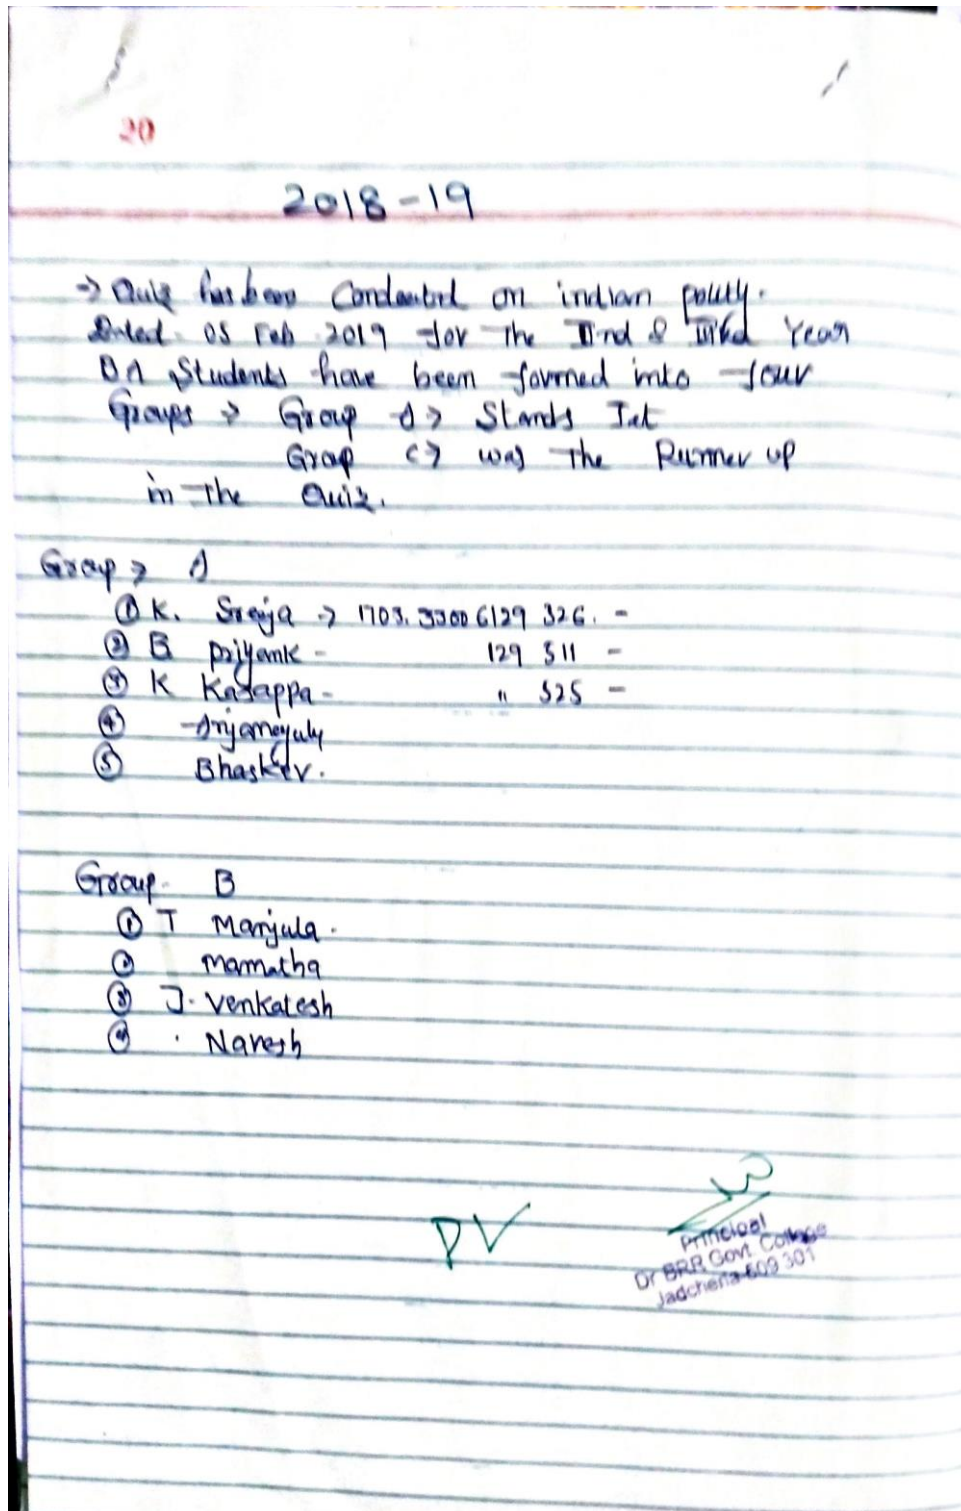 20
2018-19
→ Quiz has been Conducted on indian polity.
Dated 05 Feb 2019 for The IInd & IIIrd Year
BA Students have been formed into four
Groups → Group A → Stands Ist
Group C → was The Runner up
in The Quiz.
Group → A
① K. Sreeja → 1703. 3300 6129 326. -
② B Priyank - 129 311 -
③ K Kasappa - " 325 -
④ Anjaneyuly
⑤ Bhasker.
Group B
① T Manjula.
② Mamatha
③ J. Venkatesh
④ . Naresh
PV
Principal
Dr BRR Govt College
Jadcherla-509 301